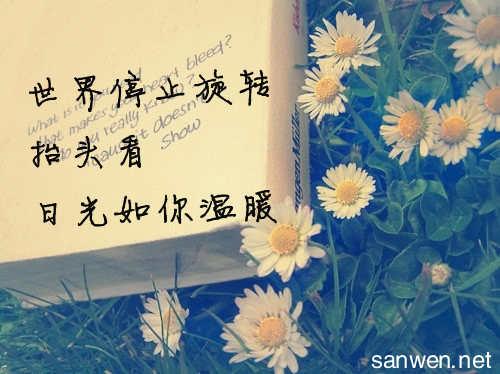 世界停止旋转
抬头看
日光如你温暖
What is it
that makes your heart bleed?
do you really
it doesn't
show
sanwen.net